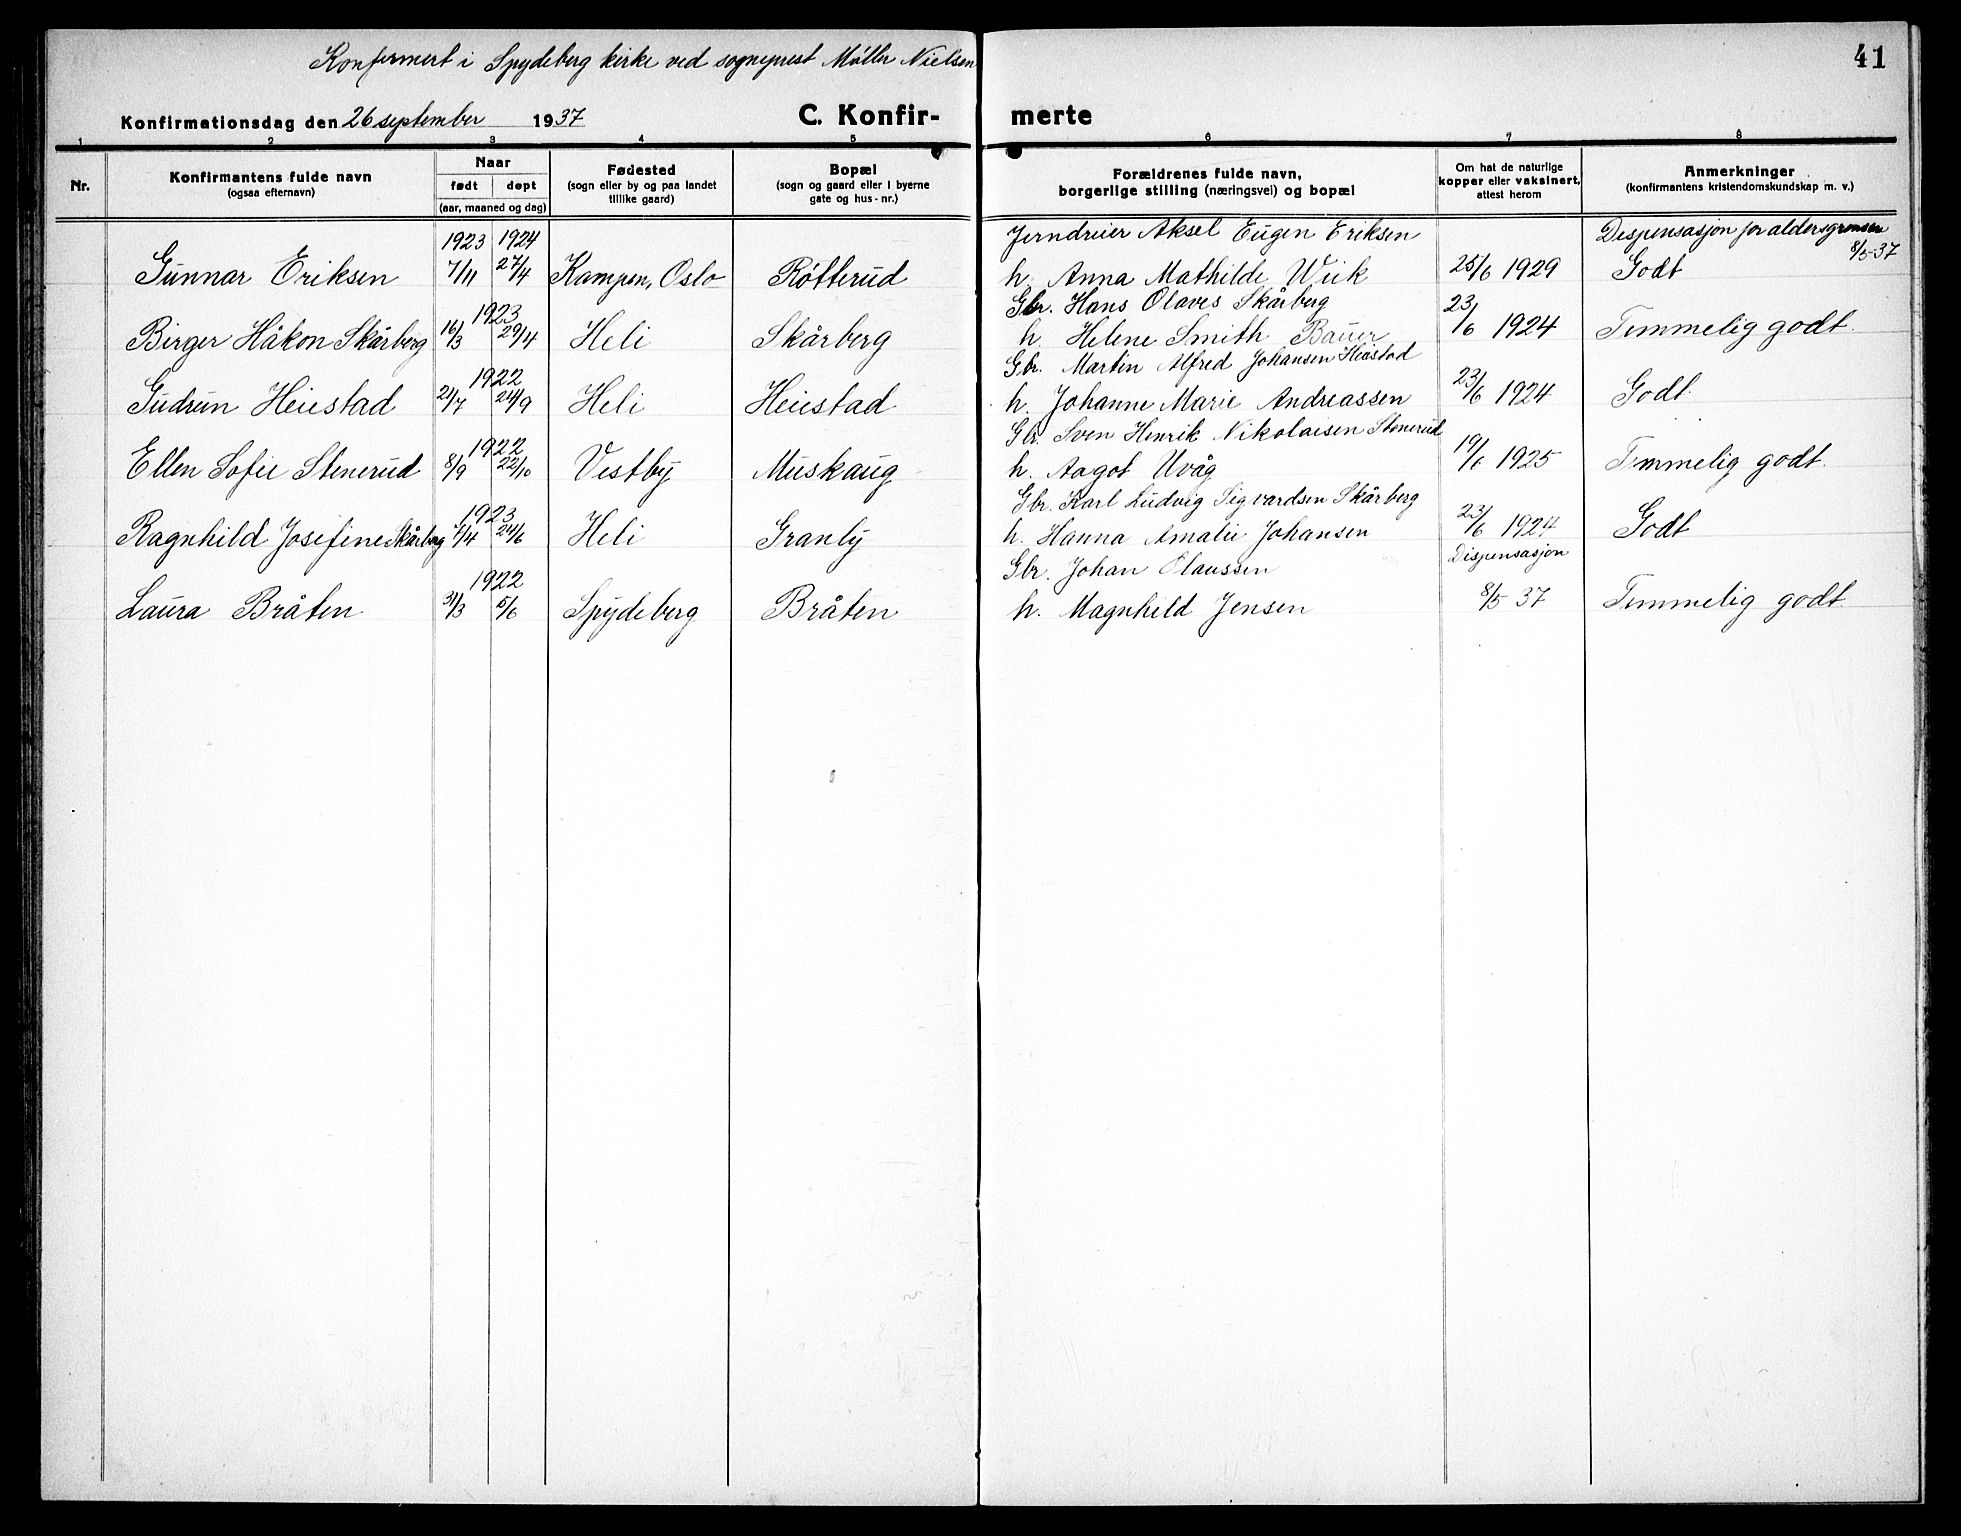 Konfirmert i Spydeberg kirke ved sogneprest Møller Nielsen
41
Konfirmationsdag den 26 september 1937
C. Konfir- merte
1 2 3 4 5 6 7 8
Nr.
Konfirmantens fulde navn
(ogsaa efternavn)
Naar
født døpt
(aar, maaned og dag)
Fødested
(sogn eller by og paa landet
tillike gaard)
Bopæl
(sogn og gaard eller i byerne
gate og hus-nr.)
Forældrenes fulde navn,
borgerlige stilling (næringsvei) og bopæl
Om hat de naturlige
kopper eller vaksinert,
attest herom
Anmerkninger
(konfirmantens kristendomskundskap m. v.)
1923 1924 Jerndreier Aksel Eugen Eriksen Dispensasjon for aldersgrensen
8/5-37
Gunnar Eriksen 7/11 27/4 Kampen, Oslo Røtterud h. Anna Mathilde Wiik 25/6 1929 Godt
1923 Gbr. Hans Olaves Skårberg
Birger Håkon Skårberg 16/3 29/4 Heli Skårberg h. Helene Smith Bauer 23/6 1924 Temmelig godt.
1922 Gbr. Martin Alfred Johansen Heiestad
Gudrun Heiestad 21/7 24/9 Heli Heiestad h. Johanne Marie Andreassen 23/6 1924 Godt.
1922 Gbr. Sven Henrik Nikolaisen Stenerud
Ellen Sofie Stenerud 8/9 22/10 Vestby Muskaug h. Aagot Uvåg 19/6 1925 Temmelig godt.
1923 Gbr. Karl Ludvig Sigvardsen Skårberg
Ragnhild Josefine Skårberg /4 24/6 Heli Granly h. Hanna Amalie Johansen 23/6 1924 Godt
1922 Gbr. Johan Olaussen Dispensasjon
Laura Bråten 31/3 5/6 Spydeberg Bråten h. Magnhild Jensen 8/5 37 Temmelig godt.